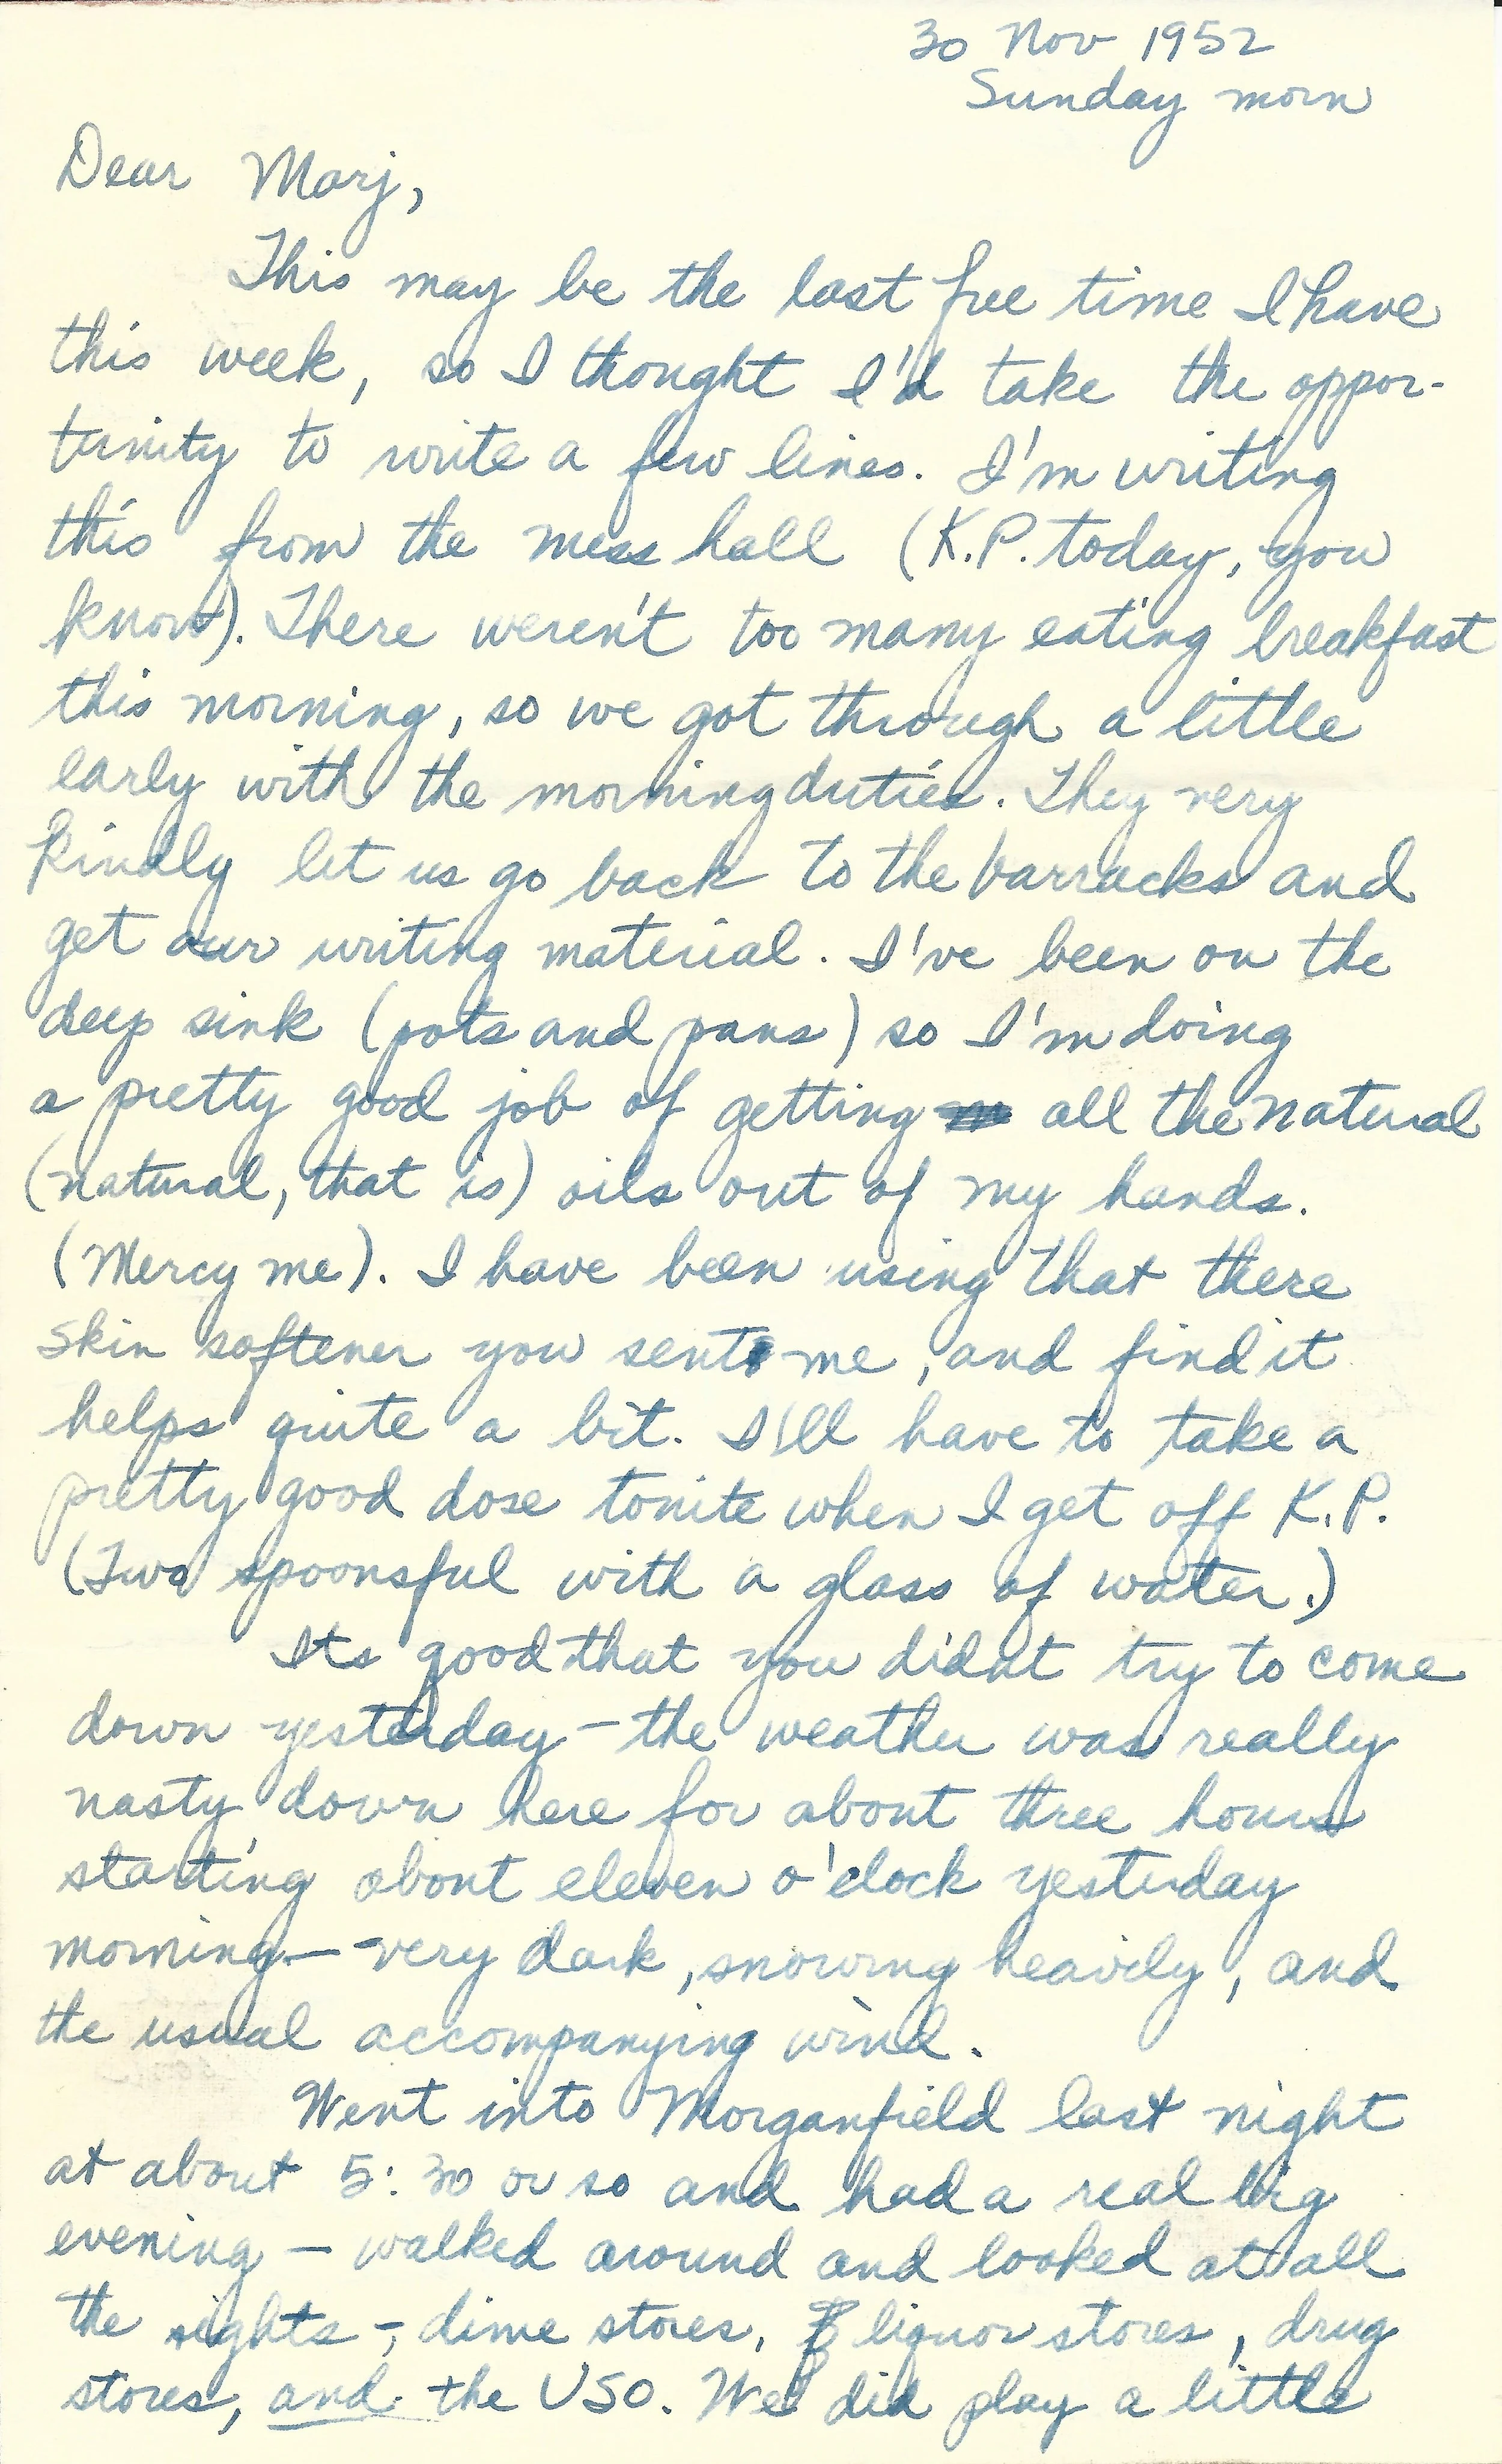 30 Nov 1952
Sunday morn
Dear Marj,
This may be the last free time I have
this week, so I thought I'd take the oppor-
tunity to write a few lines. I'm writing
this from the mess hall (K.P. today, you
know). There weren't too many eating breakfast
this morning, so we got through a little
early with the morning duties. They very
kindly let us go back to the barracks and
get our writing material. I've been on the
deep sink (pots and pans) so I'm doing
a pretty good job of getting all the naterual
(natural, that is) oils out of my hands.
(Mercy me). I have been using that there
skin softener you sent me, and find it
helps quite a bit. I'll have to take a
pretty good dose tonite when I get off K.P.
(Two spoonsful with a glass of water.)
Its good that you didnt try to come
down yesterday – the weather was really
nasty down here for about three hours
starting about eleven o'clock yesterday
morning – very dark, snowing heavily, and
the usual accompanying wind.
Went into Morganfield last night
at about 5:30 or so and had a real big
evening – walked around and looked at all
the sights –, dime stores, liquor stores, drug
stores, and the USO. We did play a little